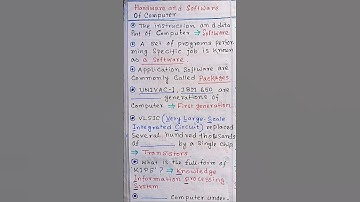 Hardware and Software
Of Computer
The instruction and data
Part of Computer ⇒ Software
A set of programs perfor
ming specific job is known
as a Software
Application Software are
Commonly Called Packages
UNIVAC-1, IBM 650 are
________ generations of
Computer ⇒ First generation
VLSIC (Very Large Scale
Integrated Circuit) replaced
Several hundred thousands
of ________ by a Single chip
⇒ Transistors
What is the full form of
KIPS? ⇒ Knowledge
Information processing
System
________ Computer under-